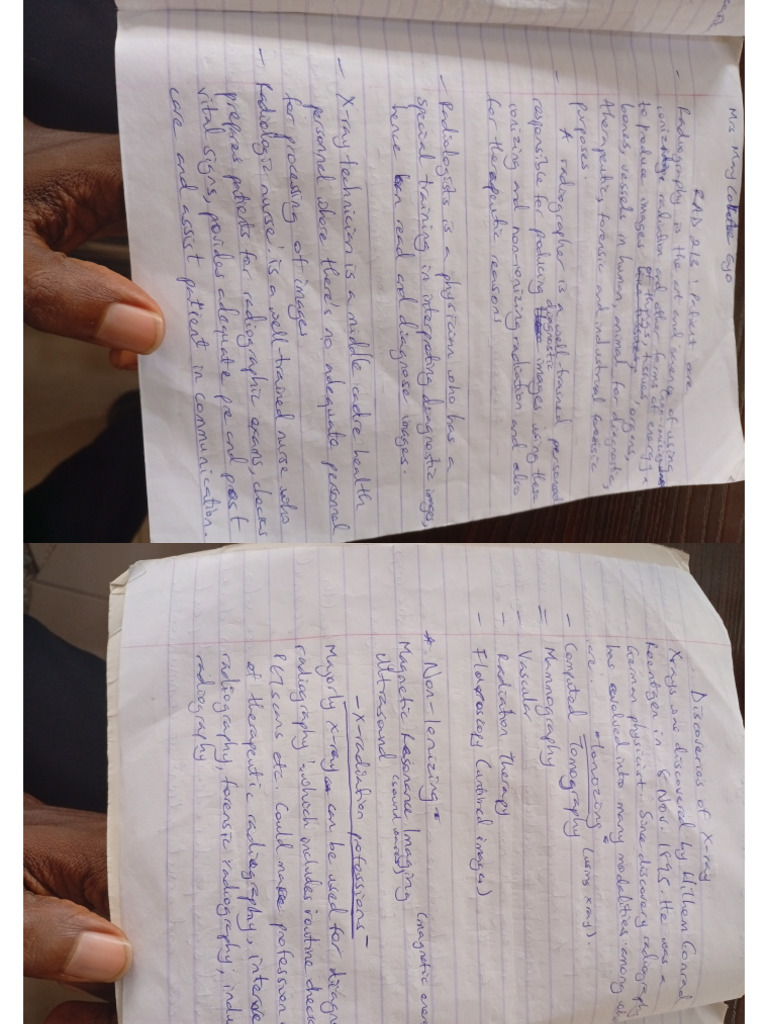 Mrs Mary Ejo
RAD 213: Patient care
- Radiography is the art and science of using
ionizing radiation and other forms of energy
to produce images of things, tissues, organs,
bones, vessels in human, animal for diagnostic,
therapeutic, forensic and industrial
purposes.
- A radiographer is a well-trained personnel
responsible for producing diagnostic images using
ionizing and non-ionizing radiation and also
for therapeutic reasons
- Radiologists is a physician who has a
special training in interpreting diagnostic images,
hence can read and diagnose images.
- X-ray technician is a middle cadre health
personnel where there's no adequate personnel
for processing of images
- Radiologic nurse: is a well-trained nurse who
prepares patients for radiographic exams, checks
vital signs, provides adequate pre and post
care and assist patient in communication.
Discoveries of X-ray
X-rays were discovered by Wilhem Conrad
Roentgen in 8 Nov. 1895. He was a
German physicist. Since discovery radiography
has evolved into many modalities among
are: - Ionizing (using x rays)
- Computed Tomography
= Mammography
- Vascular
- Radiation therapy
- Floroscopy (combined images)
* Non-Ionizing -
Magnetic Resonance Imaging (magnetic
Ultrasound (sound waves)
- X-radiation potessions -
Majorly x-rays can be used for diagn
radiography; which includes routine check
PET scans etc. Could make potession
of therapeutic radiography,
radiography, forensic radiography; indu
radiography